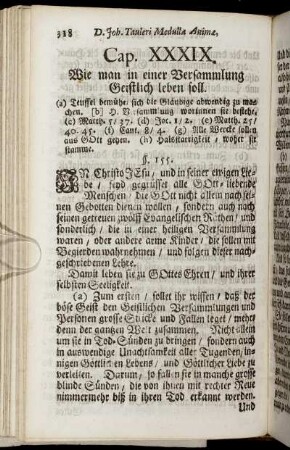 318 D. Joh. Tauleri Medulla Animæ,
Cap. XXXIX.
Wie man in einer Versammlung
Geistlich leben soll.
(a) Teuffel bemühet sich die Gläubige abwendig zu ma-
chen. [b] H. Versammlung worinnen sie bestehe.
(c) Matth. 5/ 37. (d) Jac. 1/2. (e) Matth. 25/
40. 45. (f) Cant. 8/ 4. (g) Alle Wercke sollen
aus GOtt gehen. (h) Halsstarrigkeit/ woher sie
stamme.
§. 155.
IN Christo JEsu/ und in seiner ewigen Lie-
be/ seynd gegrüsset alle GOtt-liebende
Menschen/ die GOtt nicht allein nach sei-
nen Gebotten dienen wollen/ sondern auch nach
seinen getreuen zwölff Evangelischen Räthen/ und
sonderlich/ die in einer heiligen Versammlung
waren/ oder andere arme Kinder/ die sollen mit
Begierden wahrnehmen/ und folgen dieser nach-
geschriebenen Lehre.
Damit leben sie zu GOttes Ehren/ und ihrer
selbsten Seeligkeit.
(a) Zum ersten/ sollet ihr wissen/ daß der
böse Geist den Geistlichen Versammlungen und
Personen grosse Stricke und Fallen leget/ mehr
denn der gantzen Welt zusammen. Nicht allein
um sie in Tod-Sünden zu bringen/ sondern auch
in auswendige Unachtsamkeit aller Tugenden/ in-
nigen Göttlichen Lebens/ und Göttlicher Liebe zu
verleiten. Darum/ so fallen sie in manche grosse
blinde Sünden/ die von ihnen mit rechter Reue
nimmermehr biß in ihren Tod erkannt werden.
Und